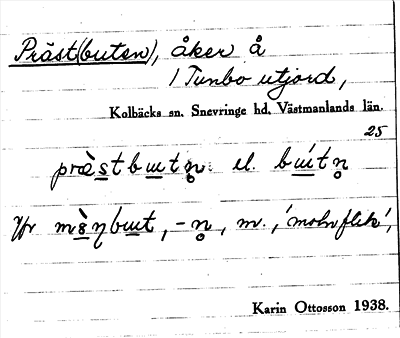 Präst(buten), åker å
/ Tunbo utjord,
Kolbäcks sn. Snevringe hd. Västmanlands län.
25
præ̀stbɯtn̥ el. bɯ́tn̥
Yr mɛ̀ŋbɯt, -n̥, m., 'molnflik',
Karin Ottosson 1938.